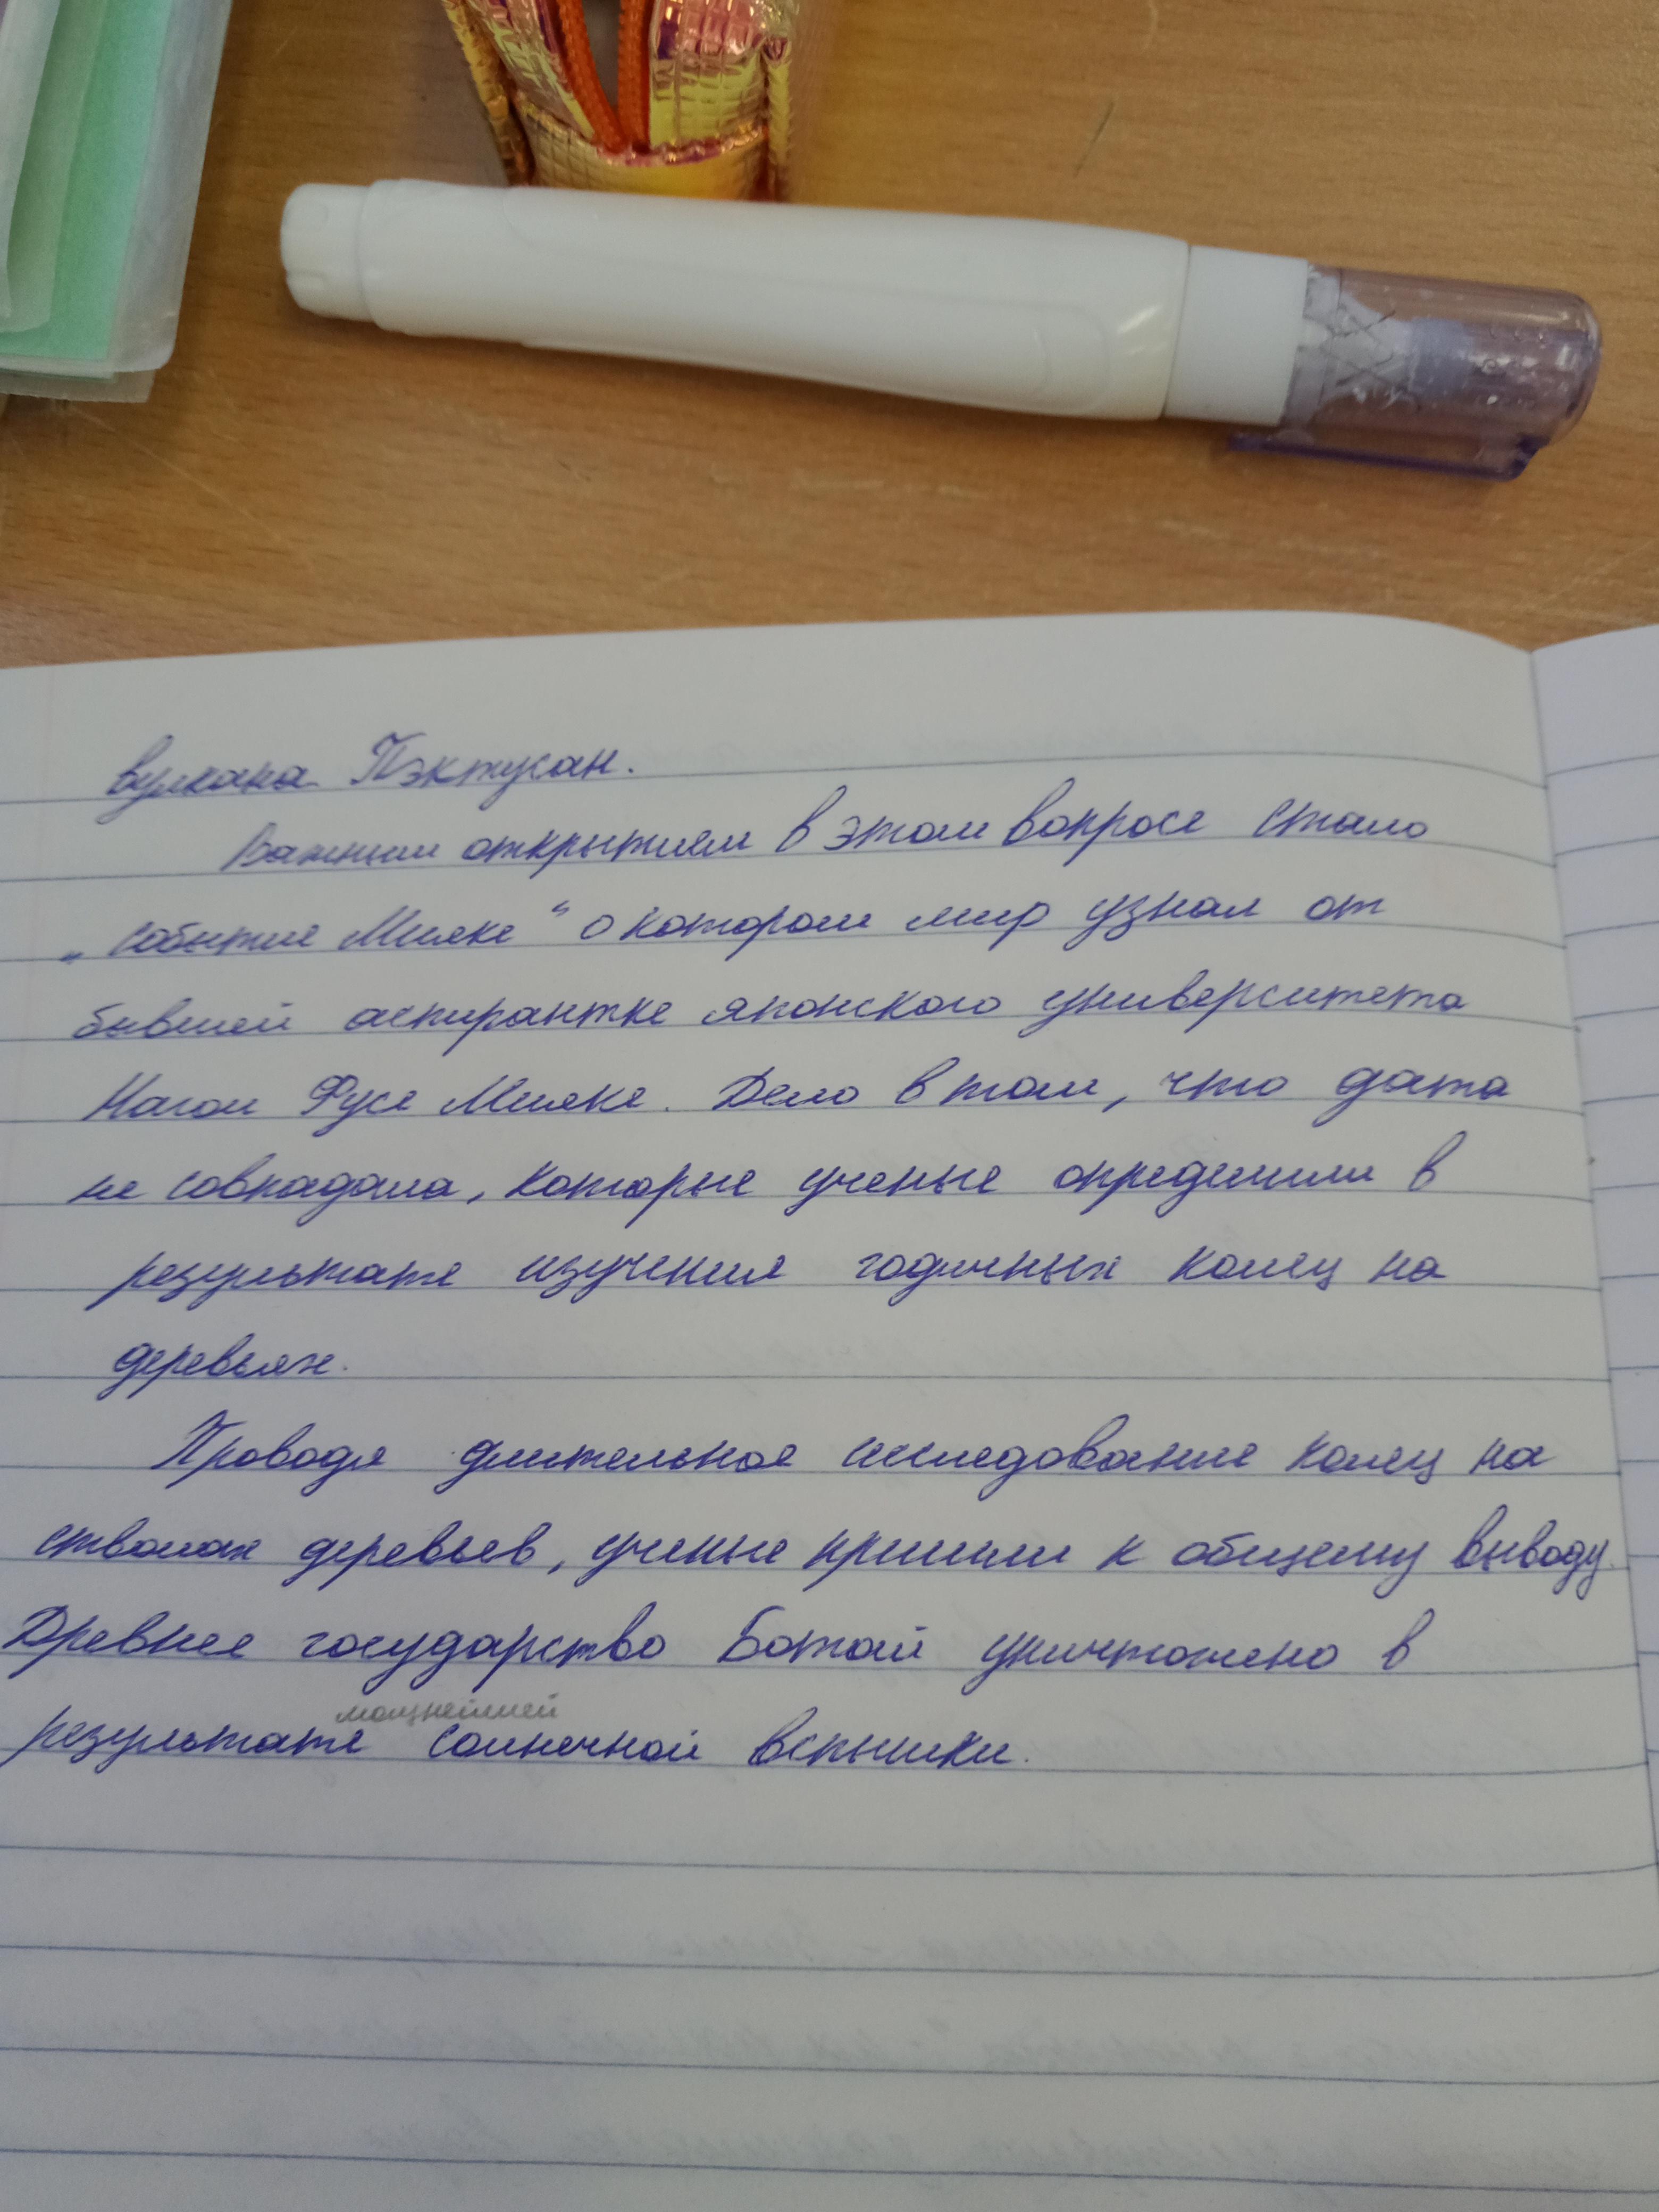 вулкана Пэктусан.
Важным открытием в этом вопросе стало
„событие Мияке“ о котором мир узнал от
бывшей аспирантке японского университета
Нагои Фусе Мияке. Дело в том, что дата
не совпадала, которые ученые определили в
результате изучения годичных колец на
деревьях.
Проводя длительное исследование колец на
стволах деревьев, ученые пришли к общему выводу.
Древнее государство Бохай уничтожено в
мощнейшей
результате солнечной вспышки.